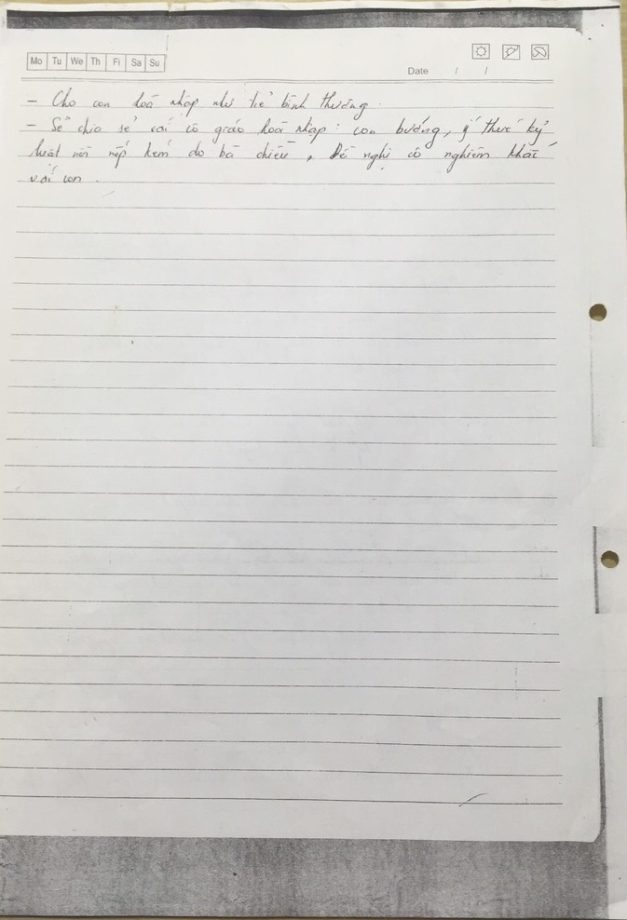 Mo Tu We Th Fi Sa Su
Date / /
- Cho con hoà nhập như trẻ bình thường.
- Sẽ chia sẻ với cô giáo hoà nhập: con bướng, ý thức kỷ
luật nề nếp kém do bà chiều, Đề nghị cô nghiêm khắc
với con.